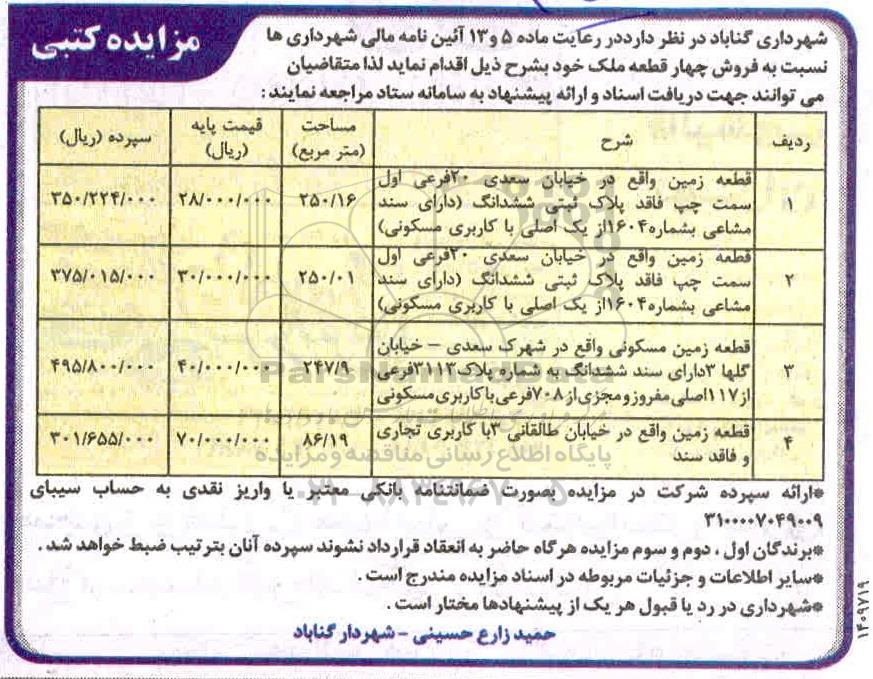 مزایده کتبی
شهرداری گناباد در نظر دارددر رعایت ماده ۵ و۱۳ آئین نامه مالی شهرداری ها
نسبت به فروش چهار قطعه ملک خود بشرح ذیل اقدام نماید لذا متقاضیان
می توانند جهت دریافت اسناد و ارائه پیشنهاد به سامانه ستاد مراجعه نمایند:
ردیف شرح مساحت (متر مربع) قیمت پایه (ریال) سپرده (ریال)
قطعه زمین واقع در خیابان سعدی ۲۰فرعی اول
۱ سمت چپ فاقد پلاک ثبتی ششدانگ (دارای سند ۲۵۰/۱۶ ۲۸/۰۰۰/۰۰۰ ۳۵۰/۲۲۴/۰۰۰
مشاعی بشماره۱۶۰۴از یک اصلی با کاربری مسکونی)
قطعه زمین واقع در خیابان سعدی ۲۰فرعی اول
۲ سمت چپ فاقد پلاک ثبتی ششدانگ (دارای سند ۲۵۰/۰۱ ۳۰/۰۰۰/۰۰۰ ۳۷۵/۰۱۵/۰۰۰
مشاعی بشماره۱۶۰۴از یک اصلی با کاربری مسکونی)
قطعه زمین مسکونی واقع در شهرک سعدی – خیابان
۳ گلها ۳دارای سند ششدانگ به شماره پلاک۳۱۱۳فرعی ۲۴۷/۹ ۴۰/۰۰۰/۰۰۰ ۴۹۵/۸۰۰/۰۰۰
از۱۱۷اصلی مفروز و مجزی از ۷۰۸فرعی با کاربری مسکونی
۴ قطعه زمین واقع در خیابان طالقانی ۳با کاربری تجاری ۸۶/۱۹ ۷۰/۰۰۰/۰۰۰ ۳۰۱/۶۵۵/۰۰۰
و فاقد سند
*ارائه سپرده شرکت در مزایده بصورت ضمانتنامه بانکی معتبر یا واریز نقدی به حساب سیبای
۳۱۰۰۰۰۷۰۴۹۰۰۹
*برندگان اول ، دوم و سوم مزایده هرگاه حاضر به انعقاد قرارداد نشوند سپرده آنان بترتیب ضبط خواهد شد .
*سایر اطلاعات و جزئیات مربوطه در اسناد مزایده مندرج است .
*شهرداری در رد یا قبول هر یک از پیشنهادها مختار است .
حمید زارع حسینی – شهردار گناباد
۱۴۰۹۷۱۹
ParsNamadData
پایگاه اطلاع رسانی مناقصه و مزایده
۰۲۱-۸۸۳۴۹۶۷۰-۵